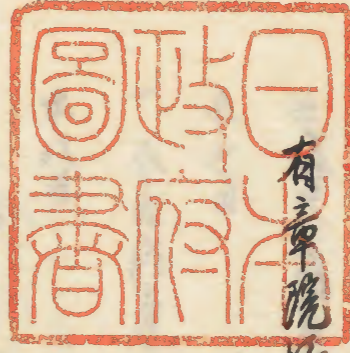 日本
政府
圖書
有章院